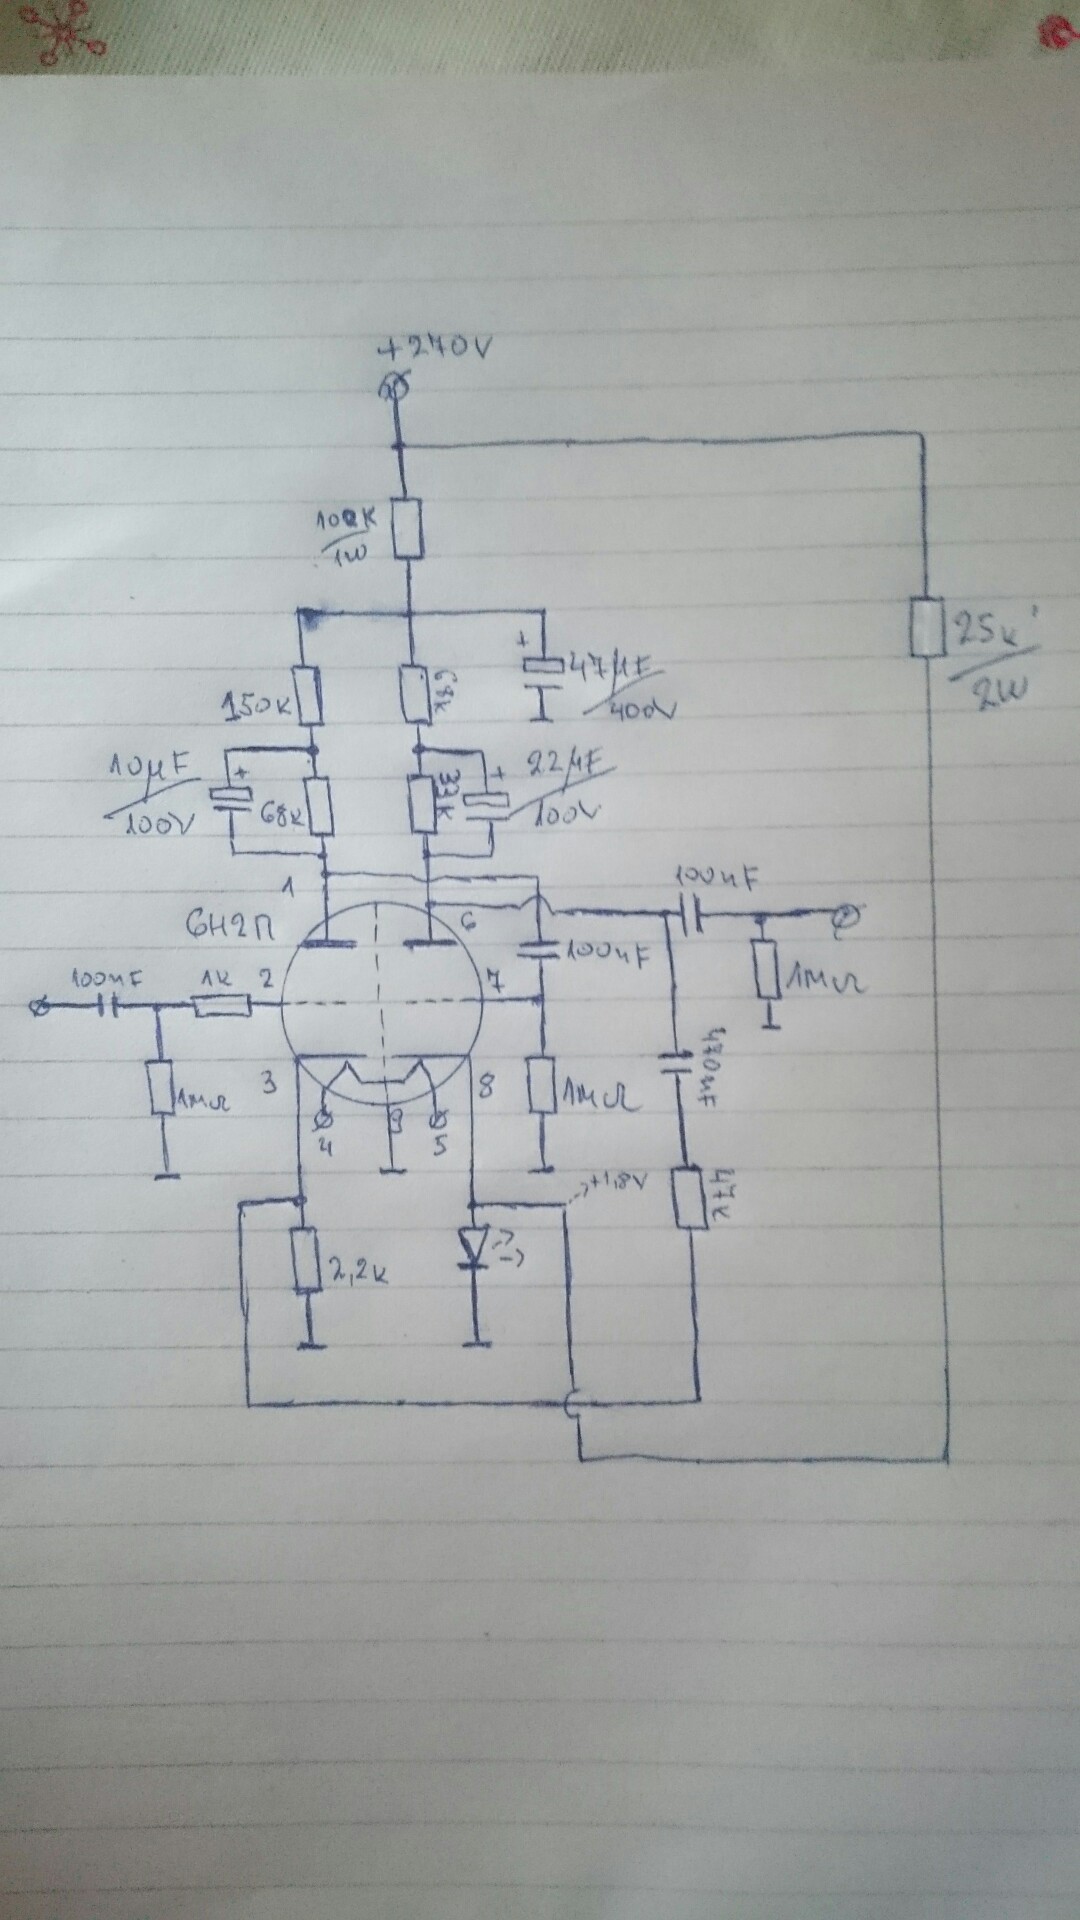 +270V
100K
1W
150K
68K
+
47µF
400V
25K
2W
10µF
100V
+
68K
33K
+
22µF
100V
1
6
6Н2П
100nF
100nF
1MΩ
100nF
1K
2
7
3
8
1MΩ
4
9
5
1MΩ
470nF
47K
+1,8V
2,2K